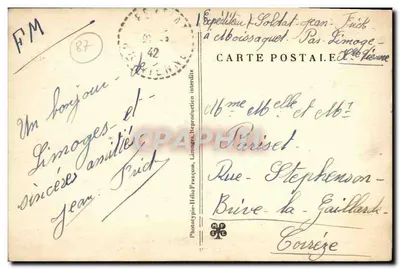 FM
87
42
Expéditeur Soldat Jean Frich
à Moissaguet Pas Limoge
Hte Vienne
CARTE POSTALE
Un bonjour de
Limoges et
sincères amitiés
Jean Frich
Phototypie-Hélio-Français, Limoges, Reproduction interdite
Mme Melle et Mr
Puriset
Rue Stephenson
Brive-la-Gaillarde
Corrèze